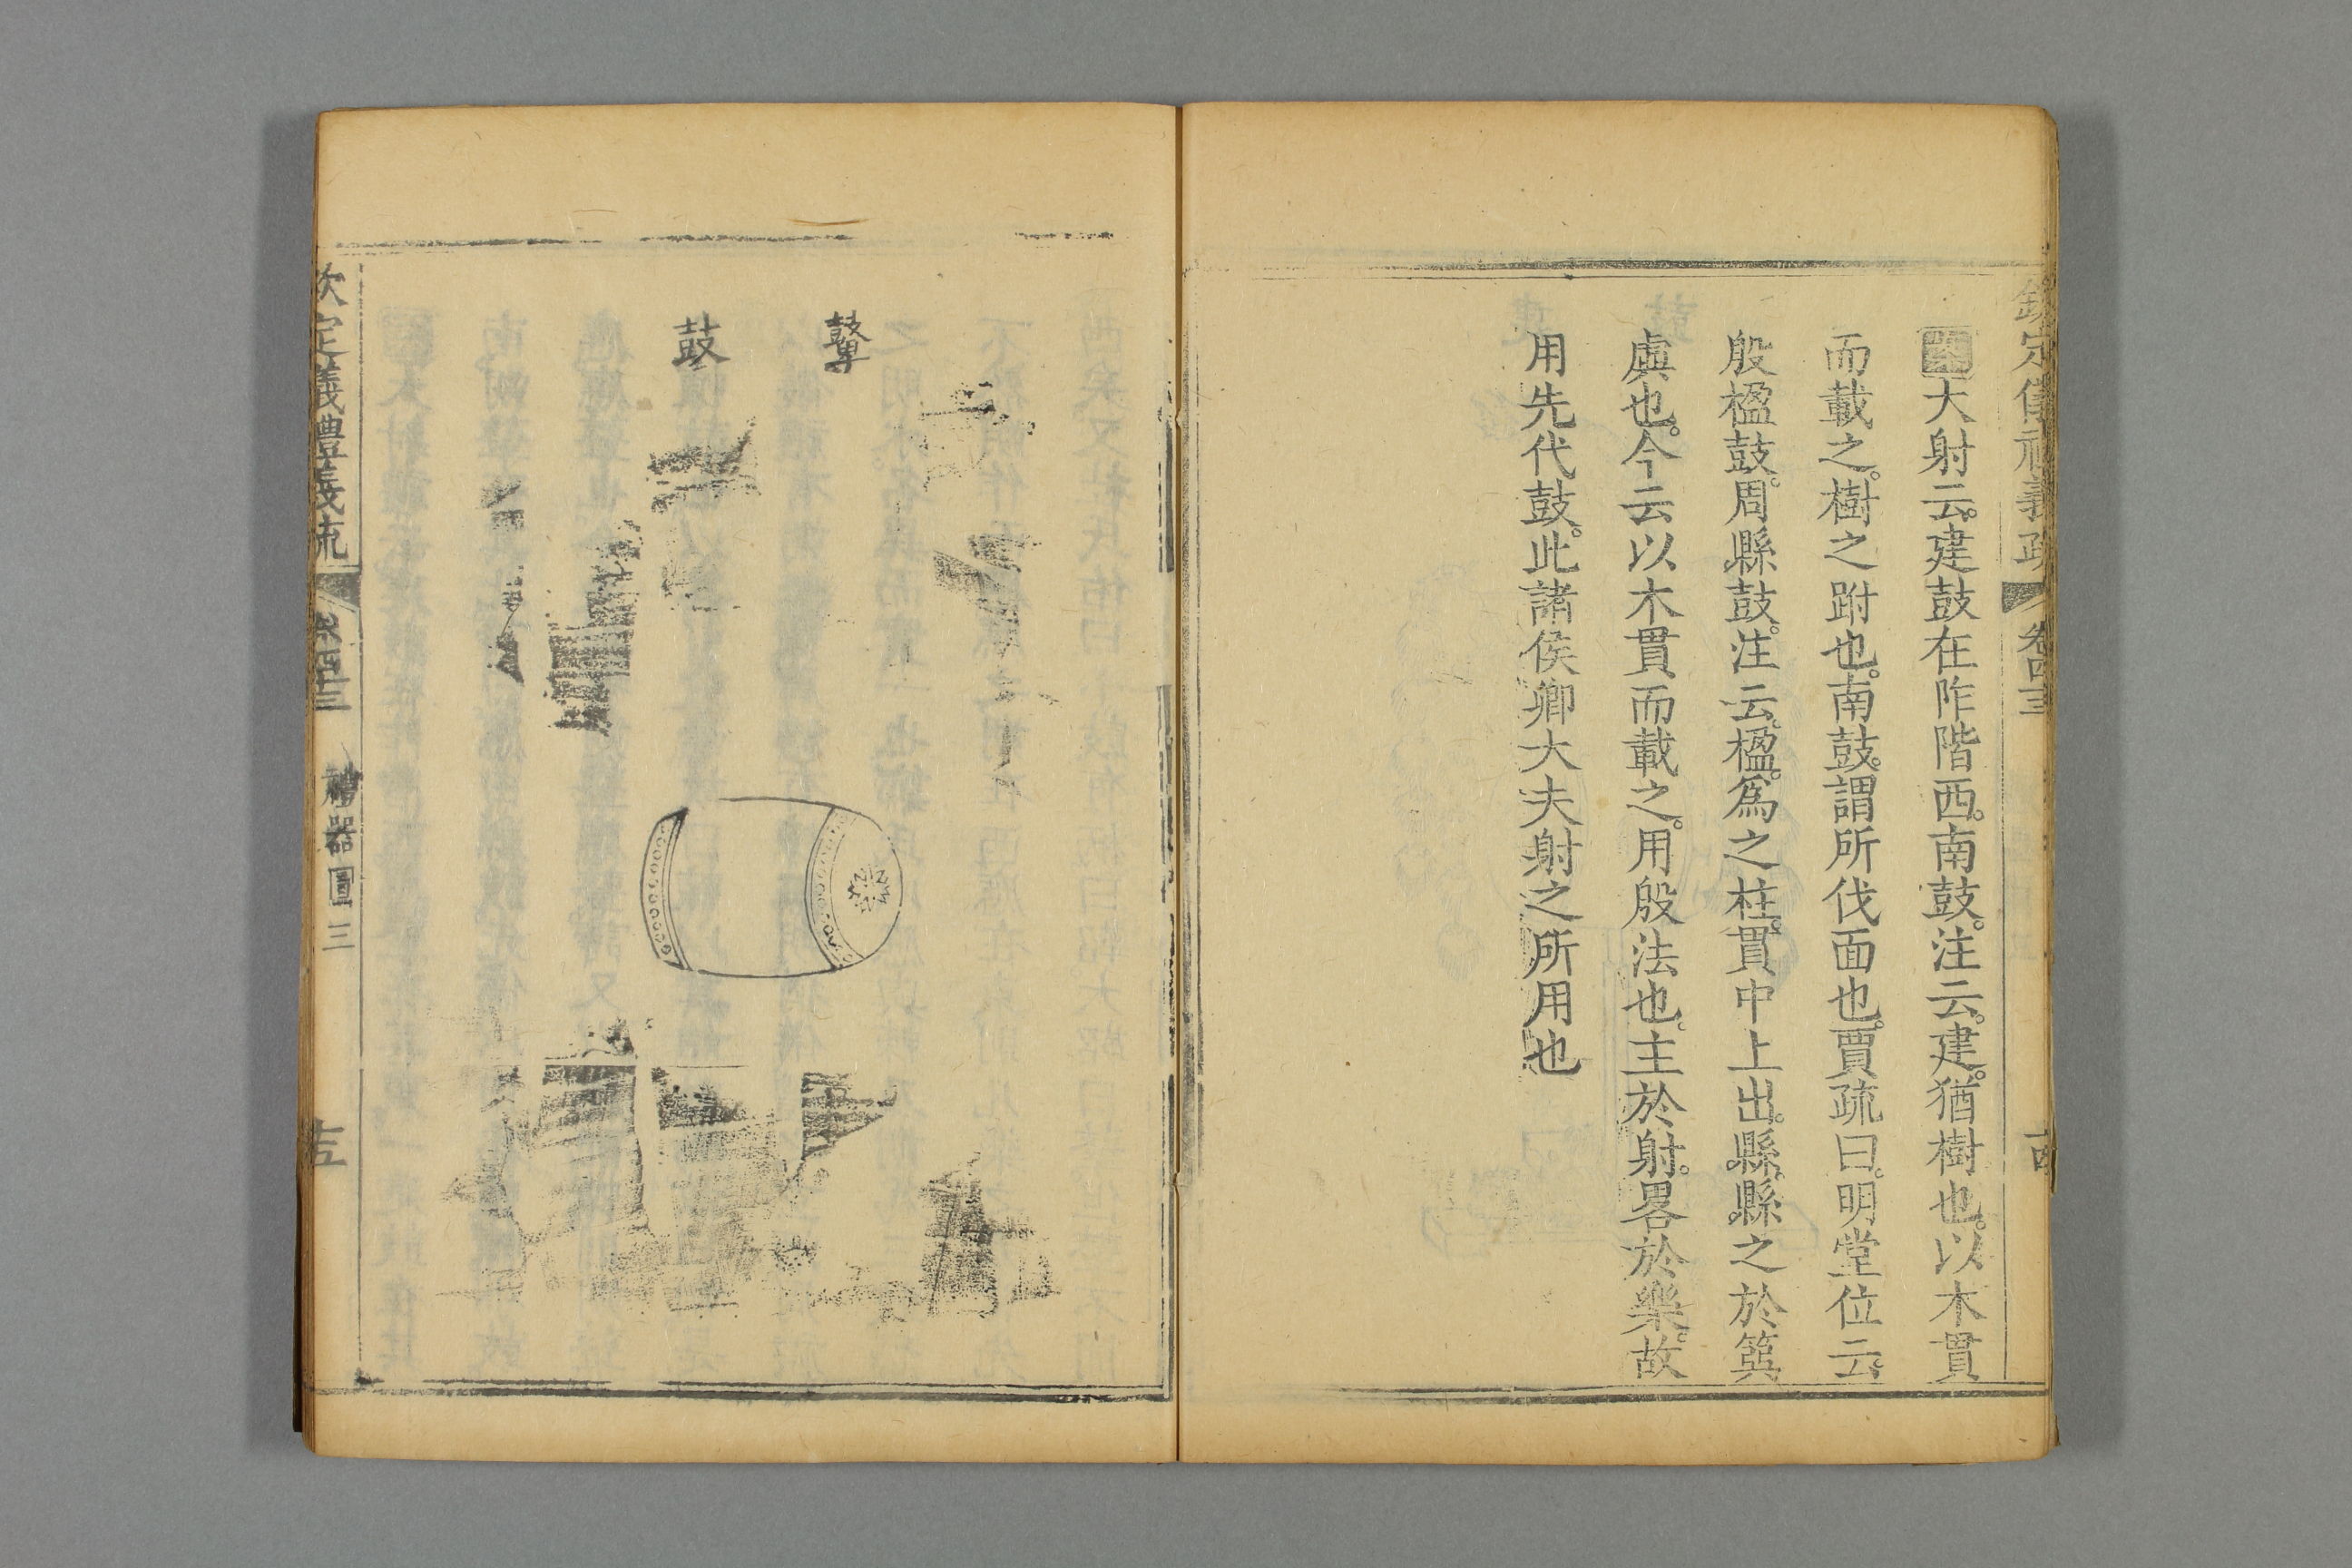 欽定儀禮義疏 卷四十三 十四
大射云。建鼓在阼階西。南鼓。注云。建。猶樹也。以木貫
而載之。樹之跗也。南鼓。謂所伐面也。賈疏曰。明堂位云。
殷楹鼓。周縣鼓。注云。楹。爲之柱。貫中上出。縣。縣之於簨
虡也。今云以木貫而載之。用殷法也。主於射。畧於樂。故
用先代鼓。此諸侯卿大夫射之所用也
鼙
鼓
欽定儀禮義疏 卷四十三 禮器圖三 十五